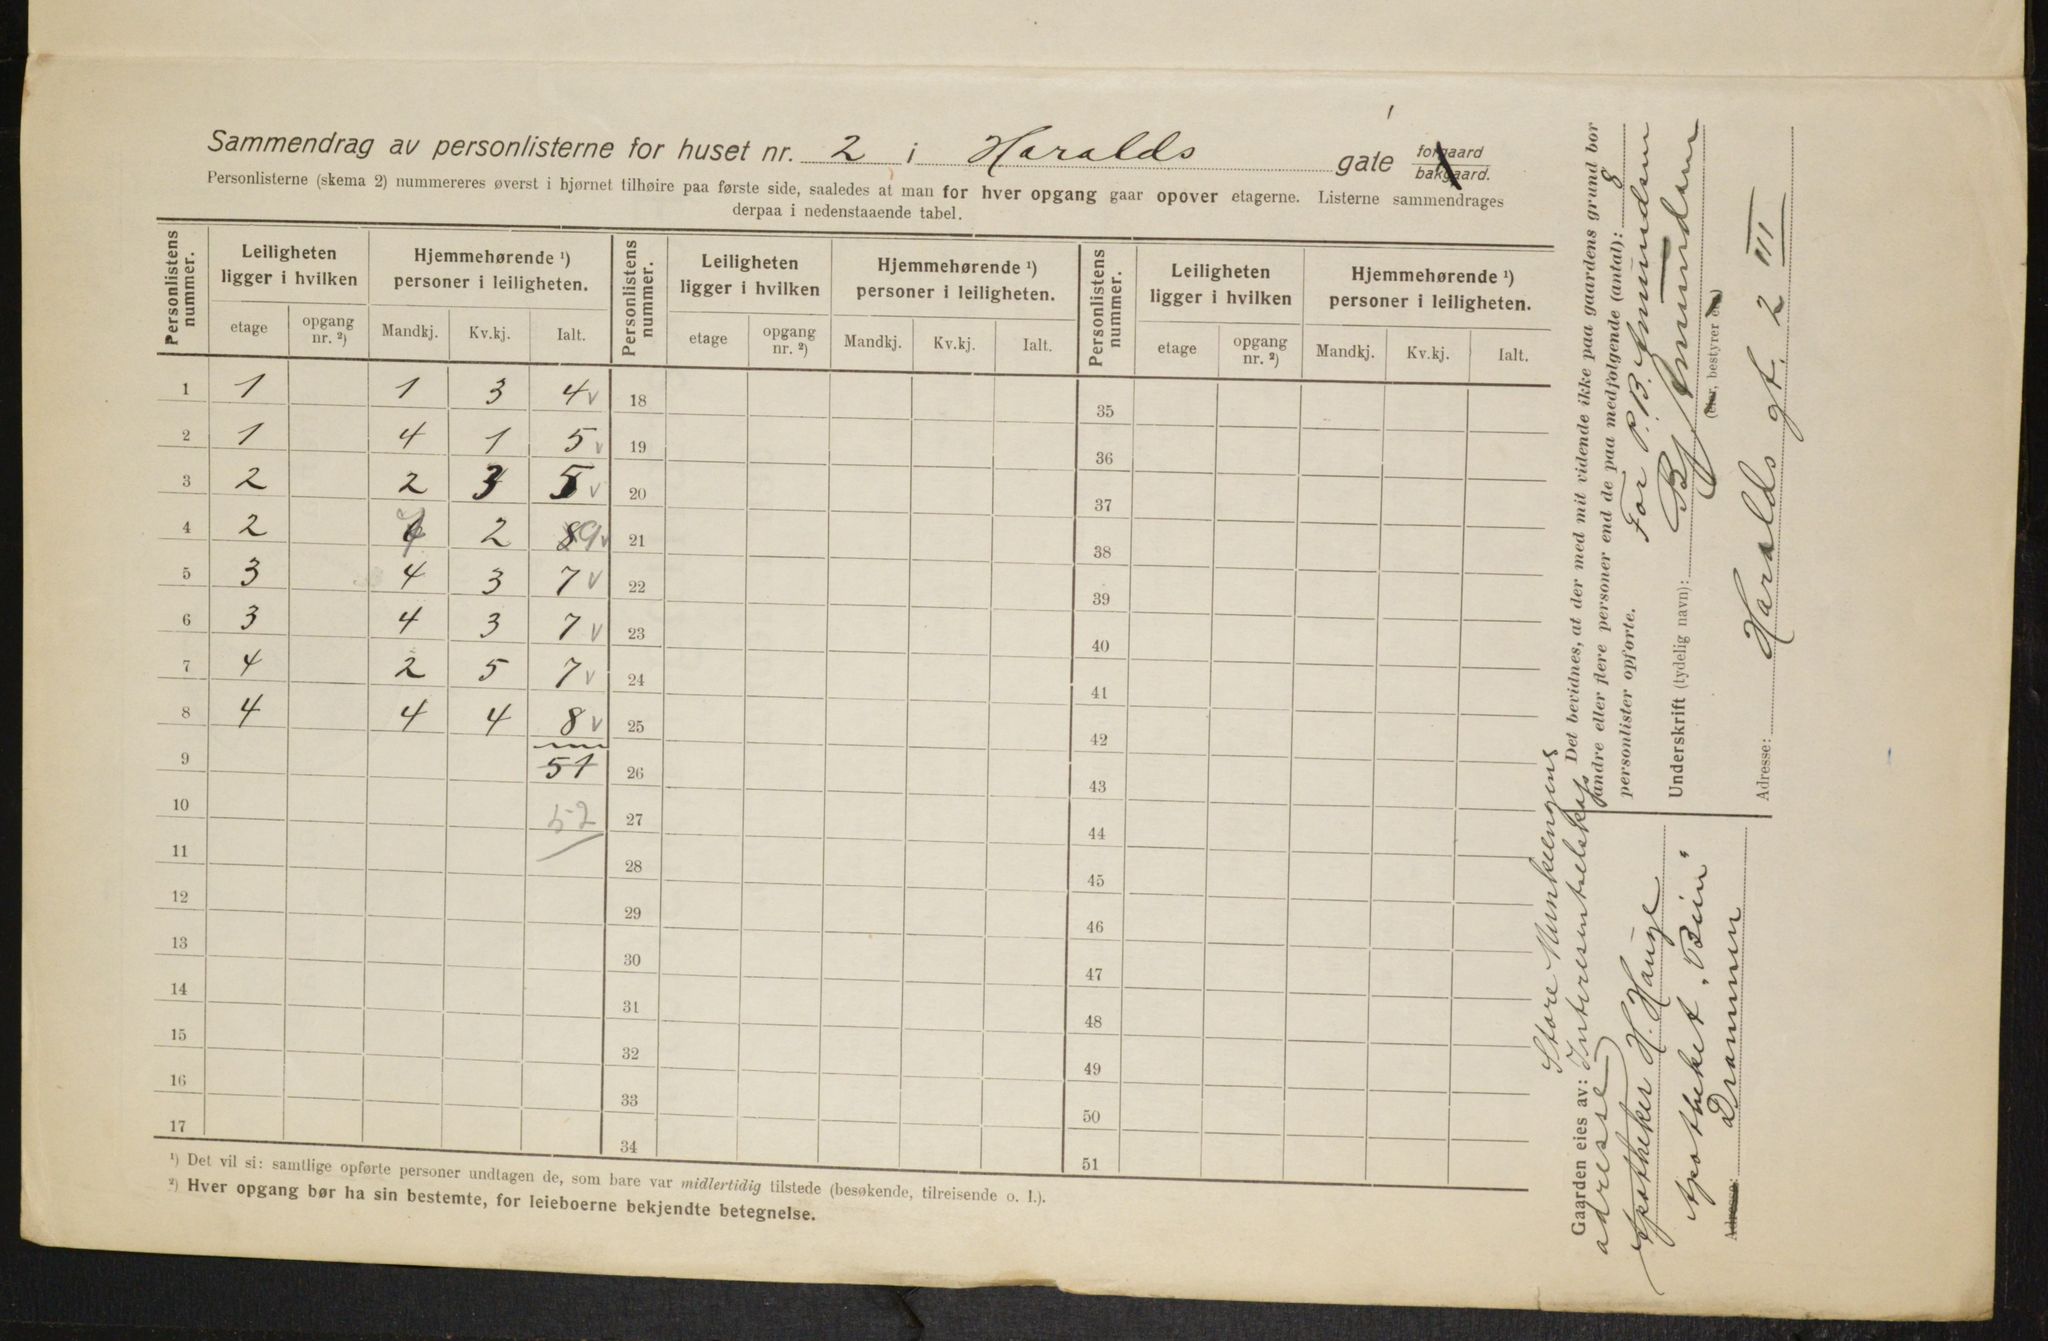 Sammendrag av personlisterne for huset nr. 2 i Haralds gate forgaard bakgaard.
Personlisterne (skema 2) nummereres øverst i hjørnet tilhøire paa første side, saaledes at man for hver opgang gaar opover etagerne. Listerne sammendrages
derpaa i nedenstaaende tabel.
Personlistens nummer. Leiligheten ligger i hvilken Hjemmehørende ¹) personer i leiligheten. Personlistens nummer. Leiligheten ligger i hvilken Hjemmehørende ¹) personer i leiligheten. Personlistens nummer. Leiligheten ligger i hvilken Hjemmehørende ¹) personer i leiligheten.
etage opgang nr. ²) Mandkj. Kv.kj. Ialt. etage opgang nr. ²) Mandkj. Kv.kj. Ialt. etage opgang nr. ²) Mandkj. Kv.kj. Ialt.
1 1 1 3 4 v 18 35
2 1 4 1 5 v 19 36
3 2 2 3 5 v 20 37
4 2 7 2 8 9 v 21 38
5 3 4 3 7 v 22 39
6 3 4 3 7 v 23 40
7 4 2 5 7 v 24 41
8 4 4 4 8 v 25 42
9 51 26 43
10 52 27 44
11 28 45
12 29 46
13 30 47
14 31 48
15 32 49
16 33 50
17 34 51
¹) Det vil si: samtlige opførte personer undtagen de, som bare var midlertidig tilstede (besøkende, tilreisende o. l.).
²) Hver opgang bør ha sin bestemte, for leieboerne bekjendte betegnelse.
Det bevidnes, at der med mit vidende ikke paa gaardens grund bor
andre eller flere personer end de paa medfølgende (antal): 8
personlister opførte. For P. B. Amundsen
Underskrift (tydelig navn): B Amundsen
(eier, bestyrer etc.)
Adresse: Haralds gt. 2 III
Store Munkeengens
Gaarden eies av: Interesentselskap
adresse
Apotheker H. Hauge
Apotheket "Bien"
Adresse: Drammen